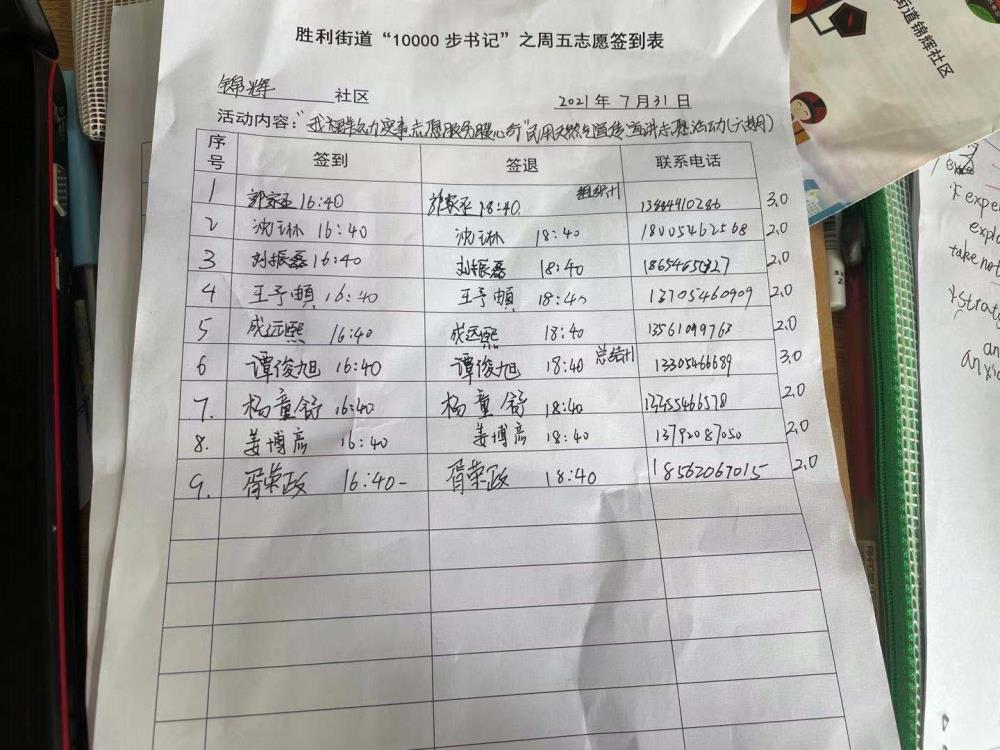 胜利街道“10000步书记”之周五志愿签到表
锦辉 社区 2021年7月31日
活动内容：“我为群众办实事志愿服务暖心行”民用天然气宣传宣讲志愿活动（六期）
序号 签到 签退 联系电话
1 16:40 18:40. 13844910286 3.0
2 沈琳 16:40 沈琳 18:40 18005462568 2.0
3 刘振磊 16:40 刘振磊 18:40 2.0
4 王予頔 16:40 王予頔 18:40 13705460909 2.0
5 成远熙 16:40 成远熙 18:40 13561099763 2.0
6 谭俊旭 16:40 谭俊旭 18:40 总结1 13305466689 3.0
7. 杨童舒 16:40 杨童舒 18:40 13455466578 2.0
8. 姜博彦 16:40 姜博彦 18:40 13792087050 2.0
9. 胥荣政 16:40- 胥荣政 18:40 18562067015 2.0
街道锦辉社区
exper
explo
take not
strate
an
anxi